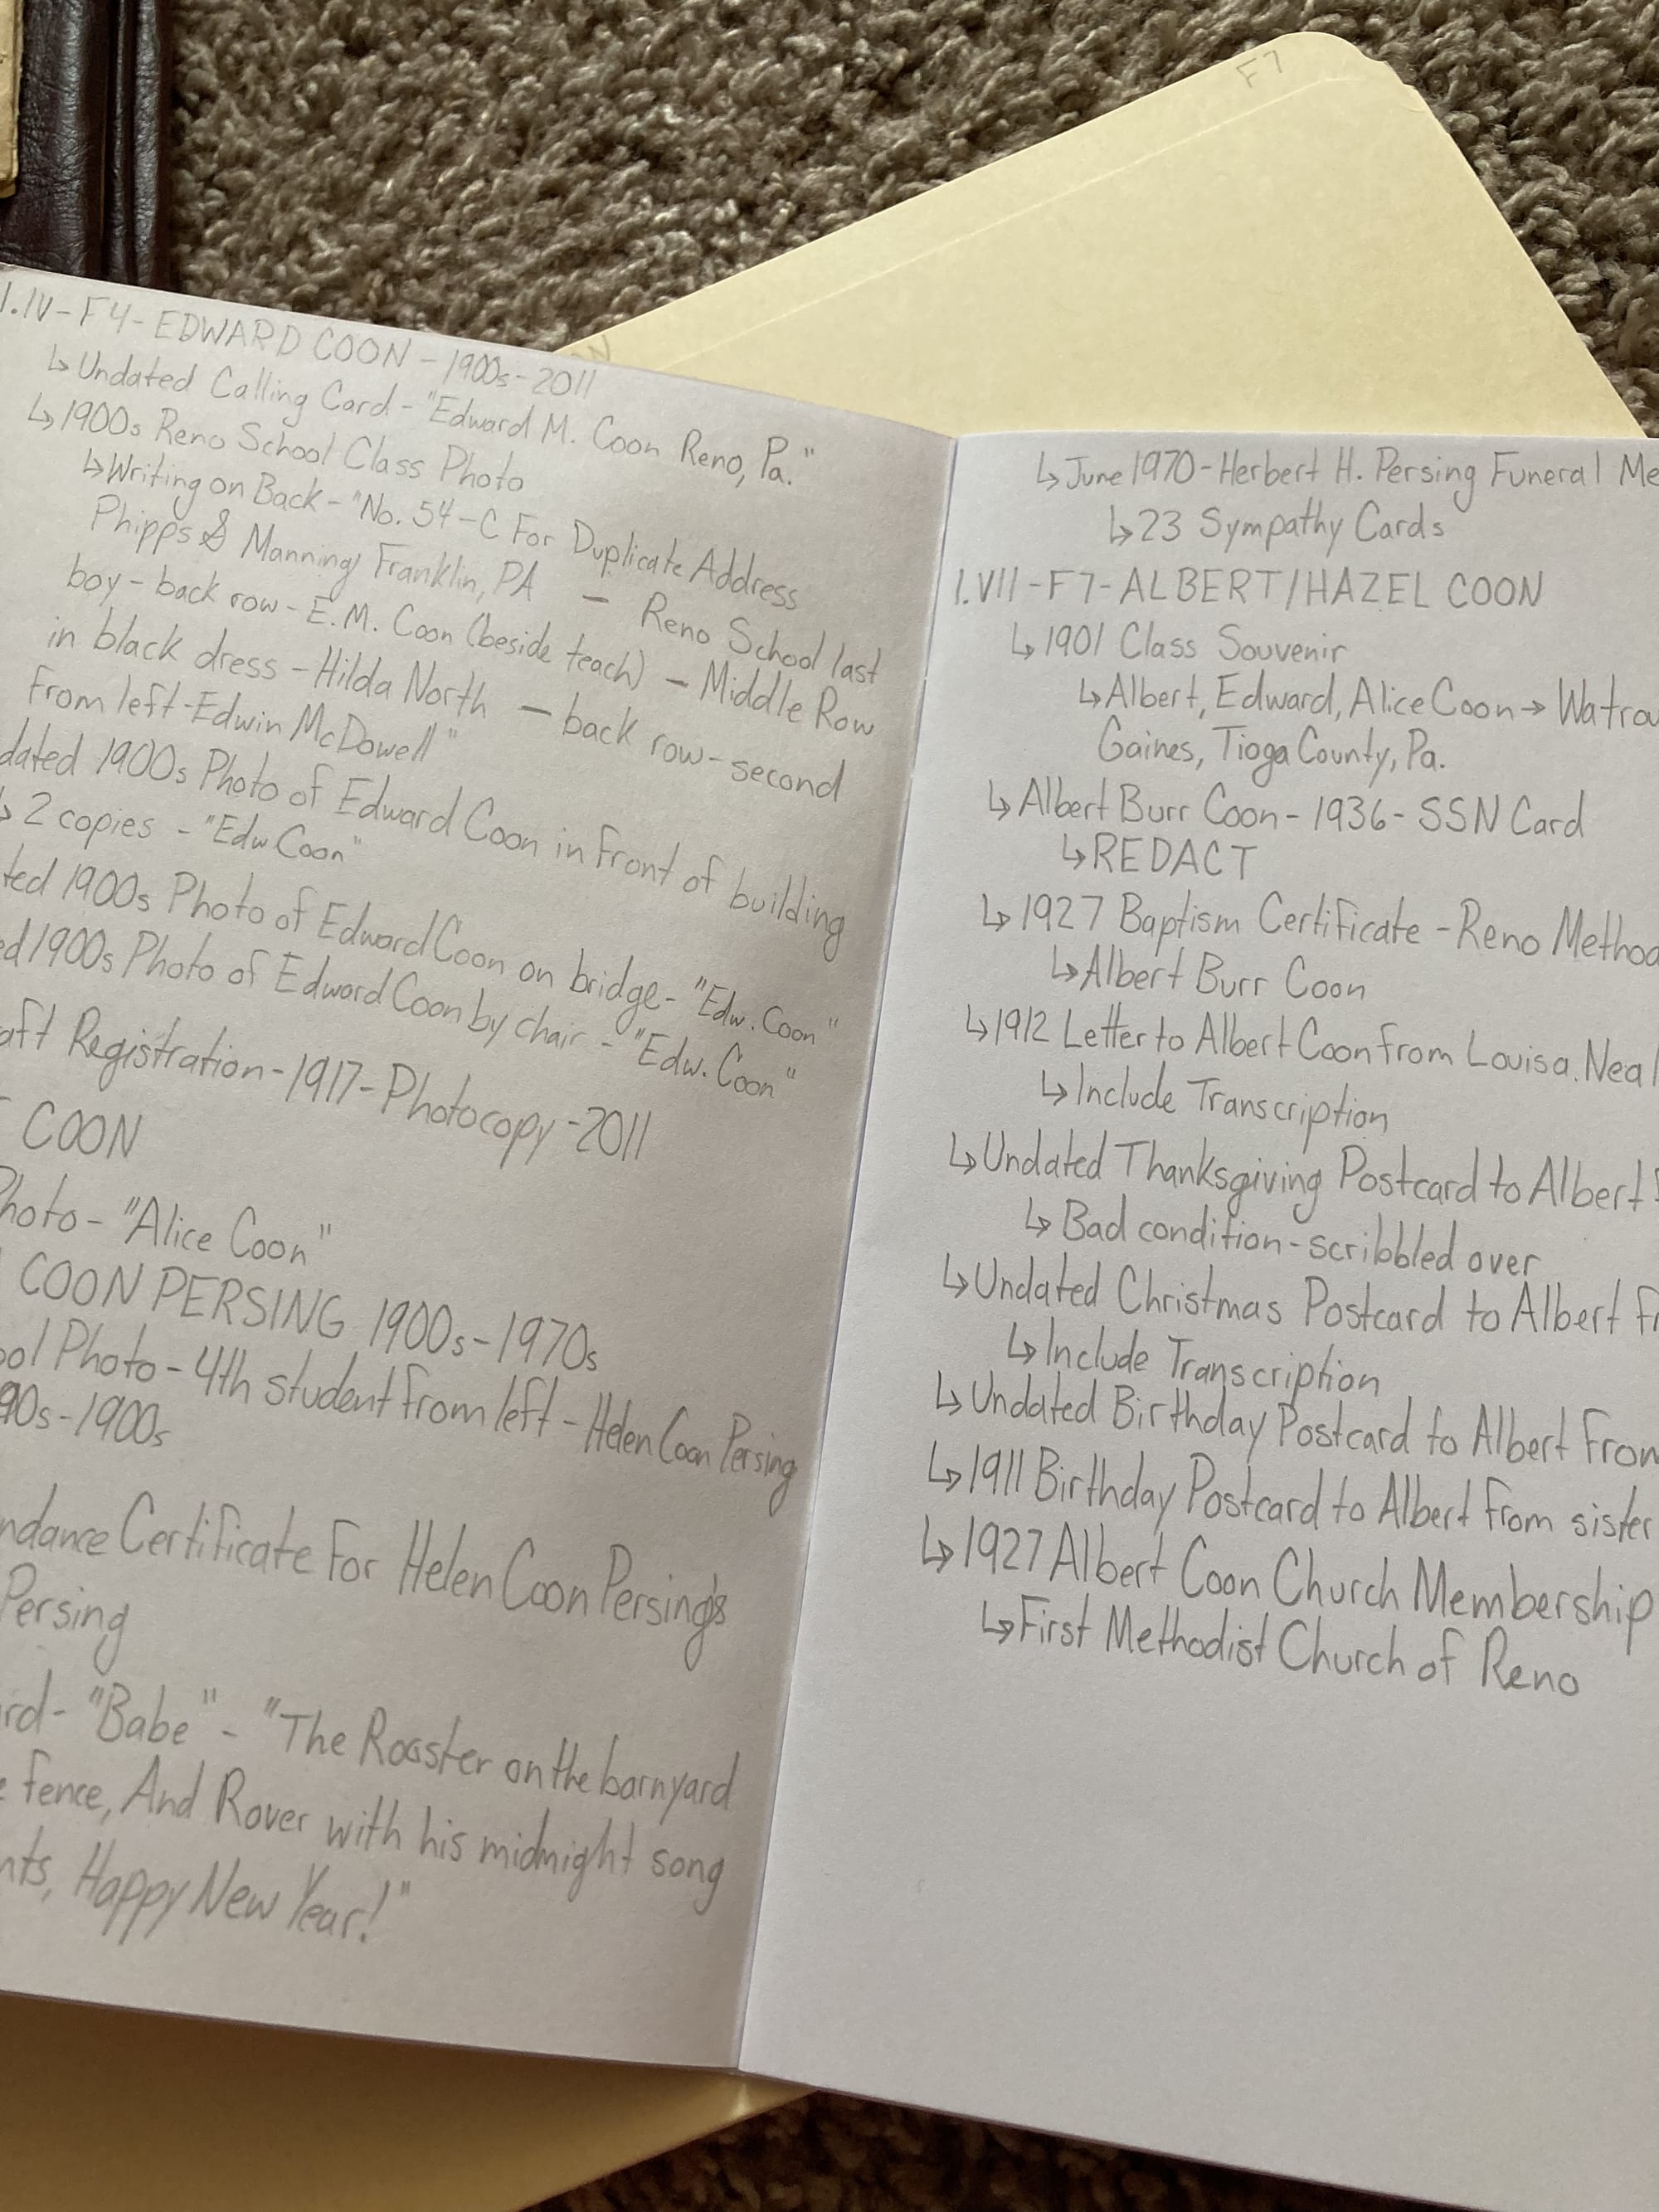 F7
I.IV-F4-EDWARD COON-1900s-2011
↳Undated Calling Card-"Edward M. Coon Reno, Pa."
↳1900s Reno School Class Photo
↳Writing on Back-"No. 54-C For Duplicate Address
Phipps & Manning Franklin, PA - Reno School last
boy-back row-E.M. Coon (beside teach) - Middle Row
in black dress-Hilda North - back row-second
from left-Edwin McDowell"
dated 1900s Photo of Edward Coon in front of building
↳2 copies -"Edw Coon"
ted 1900s Photo of Edward Coon on bridge-"Edw. Coon"
ed 1900s Photo of Edward Coon by chair -"Edw. Coon"
aft Registration-1917-Photocopy-2011
COON
Photo-"Alice Coon"
COON PERSING 1900s-1970s
ool Photo-4th student from left-Helen Coon Persing
90s-1900s
ndance Certificate For Helen Coon Persing's
Persing
rd-"Babe"-"The Rooster on the barnyard
fence, And Rover with his midnight song
nts, Happy New Year!"
↳June 1970-Herbert H. Persing Funeral Me
↳23 Sympathy Cards
I.VII-F7-ALBERT/HAZEL COON
↳1901 Class Souvenir
↳Albert, Edward, Alice Coon→Watrou
Gaines, Tioga County, Pa.
↳Albert Burr Coon-1936-SSN Card
↳REDACT
↳1927 Baptism Certificate-Reno Methoo
↳Albert Burr Coon
↳1912 Letter to Albert Coon from Louisa Neal
↳Include Transcription
↳Undated Thanksgiving Postcard to Albert
↳Bad condition-scribbled over
↳Undated Christmas Postcard to Albert Fr
↳Include Transcription
↳Undated Birthday Postcard to Albert From
↳1911 Birthday Postcard to Albert from sister
↳1927 Albert Coon Church Membership
↳First Methodist Church of Reno